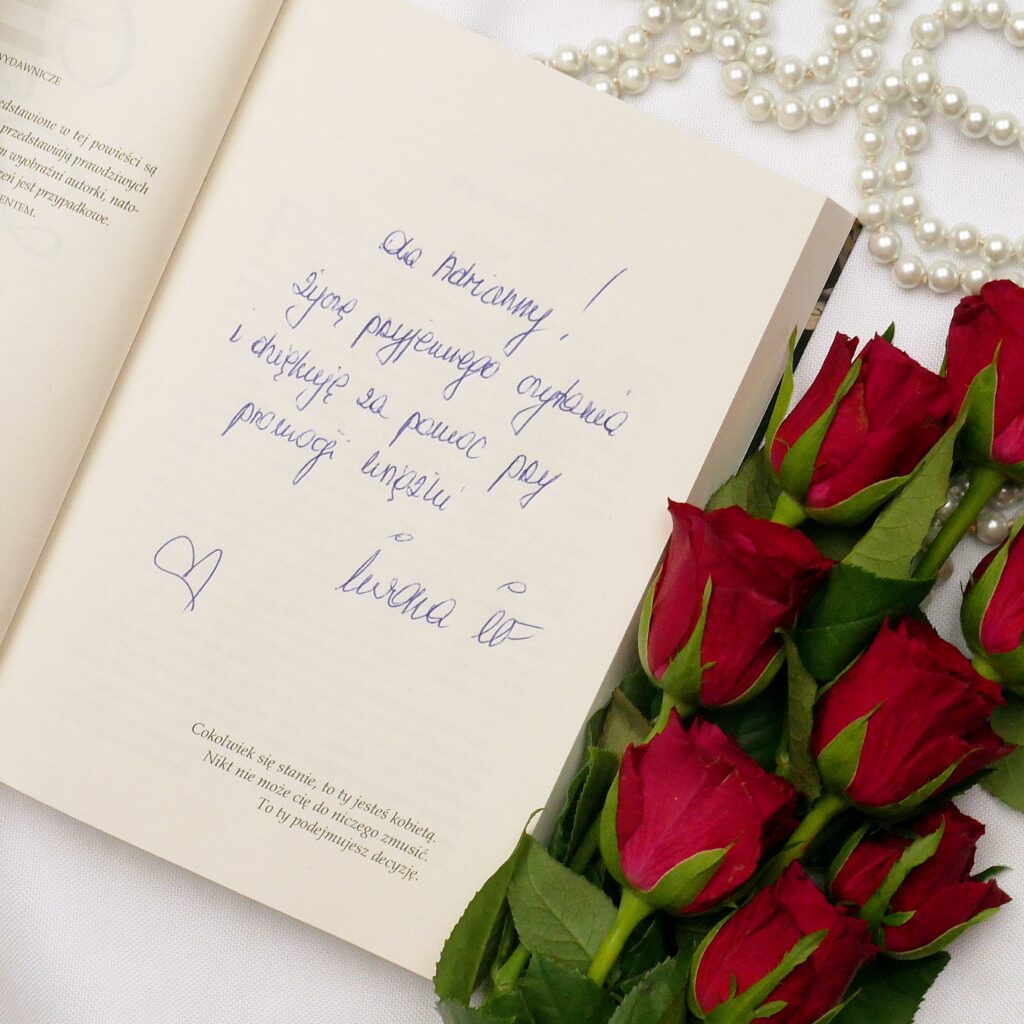 WYDAWNICZE
edstawione w tej powieści są
przedstawiają prawdziwych
m wyobraźni autorki, nato-
zeń jest przypadkowe.
ENTEM.
dla Adrianny!
życzę przyjemnego czytania
i dziękuję za pomoc przy
promocji książki
Cokolwiek się stanie, to ty jesteś kobietą.
Nikt nie może cię do niczego zmusić.
To ty podejmujesz decyzję.